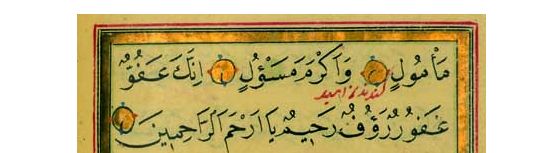 مَأْمُولٍ وَاَكْرَمَ مَسْؤُلٍ اِنَّكَ عَفُوٌّ
غَفُورٌ رَؤُفٌ رَحِيمٌ يَا اَرْحَمَ الرَّاحِمِينَ